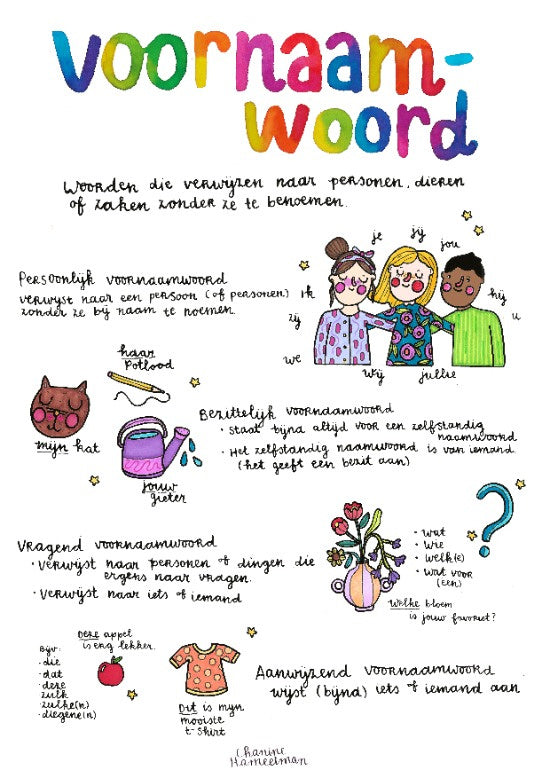 Voornaam-
woord
Woorden die verwijzen naar personen, dieren
of zaken zonder ze te benoemen.
Persoonlijk voornaamwoord
verwijst naar een persoon (of personen)
zonder ze bij naam te noemen.
je
jij
jou
ik
hij
zij
u
we
wij
jullie
haar
potlood
mijn kat
jouw
gieter
Bezittelijk voornaamwoord
• Staat bijna altijd voor een zelfstandig
naamwoord
• Het zelfstandig naamwoord is van iemand
(het geeft een bezit aan)
Vragend voornaamwoord
• Verwijst naar personen of dingen die
ergens naar vragen.
• Verwijst naar iets of iemand
• wat
• wie
• welk(e)
• wat voor
(een)
Welke bloem
is jouw favoriet?
Deze appel
is erg lekker.
Bijv:
• die
• dat
• deze
• zulk
• zulke(n)
• diegene(n)
Dit is mijn
mooiste
t-shirt
Aanwijzend voornaamwoord
wijst (bijna) iets of iemand aan
Chanine
Hameelman